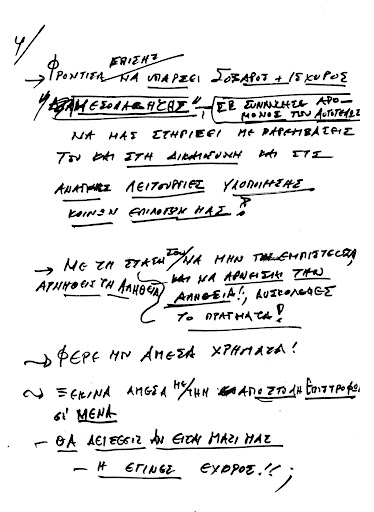 4/
ΕΠΙΣΗΣ
→ ΦΡΟΝΤΙΣΑ ΝΑ ΥΠΑΡΞΕΙ ΣΟΒΑΡΟΣ + ΙΣΧΥΡΟΣ
"ΜΕΣΟΛΑΒΗΤΗΣ" ΣΕ ΣΥΝΝΕΝΟΗΣΗ
ΤΩΝ
ΝΑ ΜΑΣ ΣΤΗΡΙΞΕΙ ΜΕ ΠΑΡΕΜΒΑΣΕΙΣ
ΤΟΥ ΚΑΙ ΣΤΗ ΔΙΚΑΙΟΣΥΝΗ ΚΑΙ ΣΤΙΣ
ΑΝΑΓΚΕΣ ΛΕΙΤΟΥΡΓΙΕΣ ΥΛΟΠΟΙΗΣΗΣ
ΚΟΙΝΩΝ ΕΠΙΛΟΓΩΝ ΜΑΣ!
→ ΜΕ ΤΗ ΣΤΑΣΗ ΣΟΥ ΝΑ ΜΗΝ ΕΜΠΙΣΤΕΥΕΣΑΙ
ΑΡΝΗΘΕΙΣ ΤΗ ΑΛΗΘΕΙΑ ΚΑΙ ΝΑ ΑΡΝΕΙΣΑΙ ΤΗΝ
ΑΛΗΘΕΙΑ!, ΔΥΣΚΟΛΕΨΕΣ
ΤΟ ΠΡΑΓΜΑΤΑ!
→ ΦΕΡΕ ΜΗΝ ΑΜΕΣΑ ΧΡΗΜΑΤΑ!
→ ΞΕΚΙΝΑ ΑΜΕΣΑ ΜΕ/ΤΗΝ ΑΠΟΣΤΟΛΗ ΕΠΙΣΤΡΟΦΩΝ
Σ' ΜΕΝΑ
- ΘΑ ΔΕΙΞΕΙΣ ΑΝ ΕΙΣΑΙ ΜΑΖΙ ΜΑΣ
- Η ΕΓΙΝΕΣ ΕΧΘΡΟΣ!!;